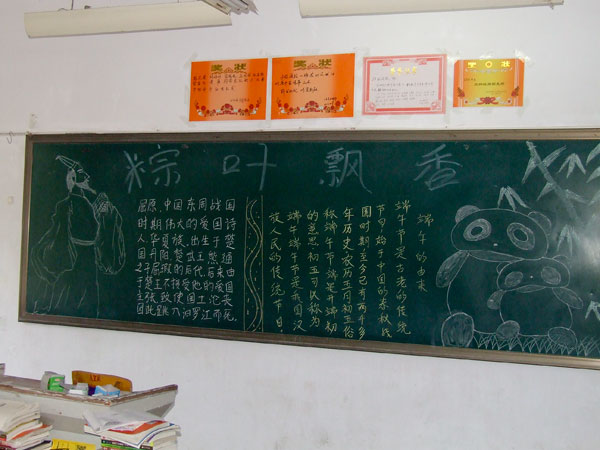 奖状
奖状
奖状
粽叶飘香
屈原,中国东周战国
时期伟大的爱国诗
人,华夏族,出生于楚
国丹阳,楚武王熊通
之子屈瑕的后代后来由
于楚王不接受他的爱国
主张致使国土沦丧
因此跳入汨罗江而死.
端午的由来
端午节是古老的传统
节日,始于中国的春秋战
国时期至今已有两千多
年历史农历五月初五俗
称端午节端是开端初
的意思初五可以称为
端午端午节是我国汉
族人民的传统节日.